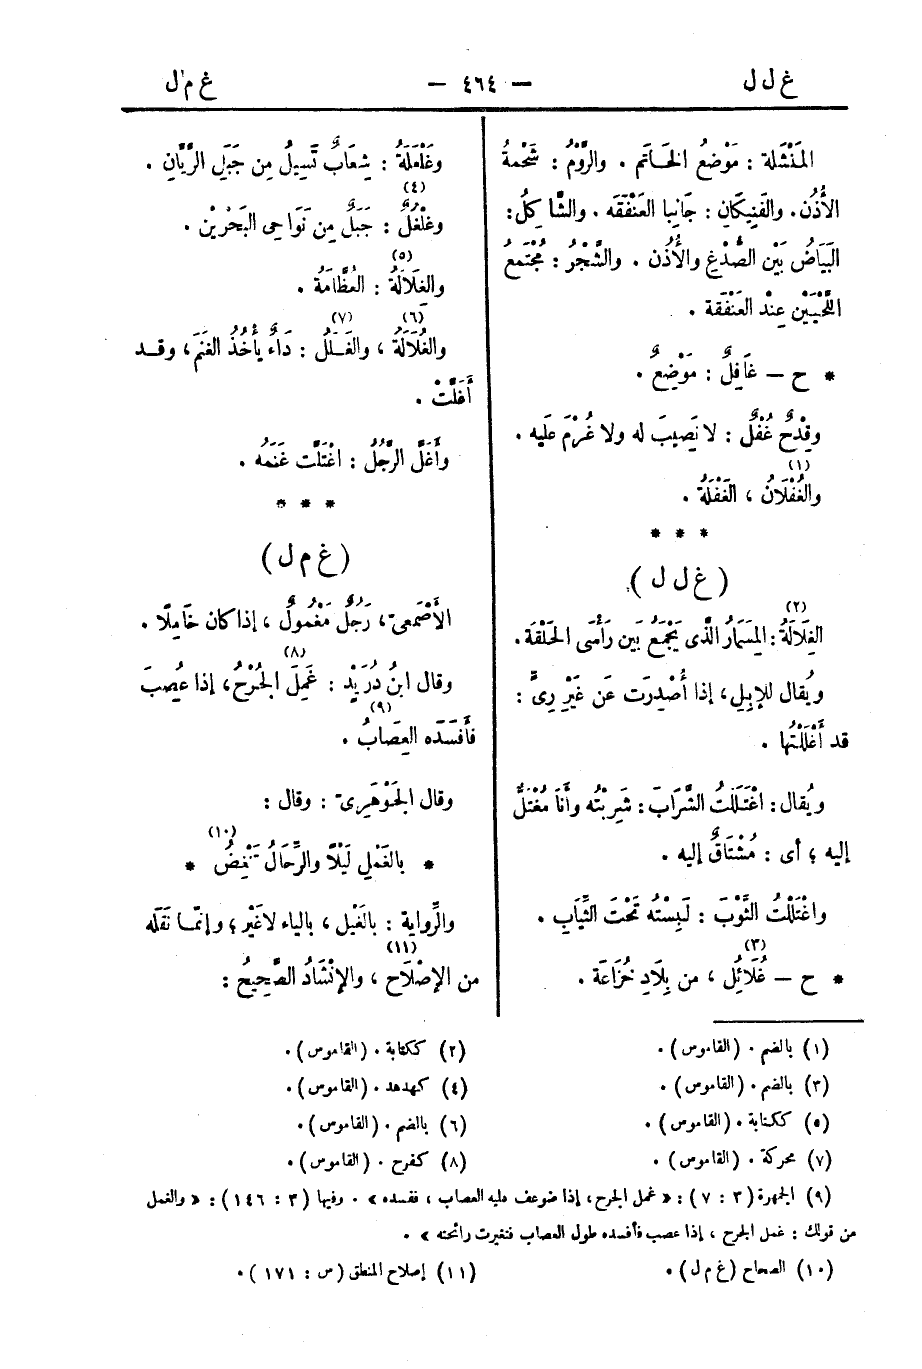 غ ل ل — ٤٦٤ — غ م ل
المَنْشَلة : مَوْضعُ الخَاتم . والرَّوْمُ : شَحْمةُ
الأُذُن . والفَنِيكَانِ : جَانِبا العَنْفَقَه . والشَّاكِلُ :
البَيَاضُ بَيْن الصُّدْغِ والأُذُن . والشَّجْرُ : مُجْتَمعُ
اللَّحْيَيْن عِنْد العَنْفَقة .
* ح — غَافِلٌ : مَوْضِعٌ .
وقِدْحٌ غُفْلٌ : لا نَصِيبَ له ولا غُرْمَ عليه .
والغُفْلَانُ (١) ، الغَفْلَةُ .
* * *
(غ ل ل)
الغِلَالَةُ (٢) : المِسَمَارُ الَّذى يَجْمَعُ بَين رَأْسَى الحَلْقَة .
ويُقال للإِبِلِ ، إذا أُصْدِرَت عَن غَيْر رِىٍّ :
قد أَغْلَلْتُها .
ويُقال : اغْتَلَلْتُ الشَّرَابَ : شَرِبْتُه وأَنَا مُغْتَلٌّ
إليه ؛ أى : مُشْتَاقٌ إليه .
واغْتَلَلْتُ الثَّوْبَ : لَبِسْتُه تَحْتَ الثِّيَابِ .
* ح — غُلَائِلُ (٣) ، من بِلَادِ خُزَاعَة .
وغَلْغَلَةُ : شِعَابٌ تَسِيلُ مِن جَبَلِ الرَّيَّانِ .
وغُلْغُلٌ (٤) : جَبَلٌ مِن نَوَاحِى البَحْرَيْن .
والغِلَالَةُ (٥) : العُظَّامَةُ .
والغُلَالَةُ (٦) ، والغَلَلُ (٧) : دَاءٌ يأْخُذُ الغَنَمَ ، وقد
أَغَلَّتْ .
وأَغَلَّ الرَّجُلُ : اغْتَلَّت غَنَمُه .
* * *
(غ م ل)
الأَصْمَعىّ ، رَجُلٌ مَغْمُولٌ ، إذا كان خَامِلًا .
وقال ابنُ دُرَيْد : غَمِلَ (٨) الجُرْحُ ، إذا عُصِبَ
فأَفسَدَه العِصَابُ (٩) .
وقال الجَوْهَرِىّ : وقال :
* بالغَمْلِ لَيْلًا والرِّحَالُ تَنْغِضُ (١٠) *
والرِّواية : بالغَيْل ، بالياء لا غَيْر ؛ وإنّما نَقَله
من الإصْلَاح (١١) ، والإنْشَادُ الصَّحِيحُ :
(١) بالضم . (القاموس) .
(٢) ككتابة . (القاموس) .
(٣) بالضم . (القاموس) .
(٤) كهدهد . (القاموس) .
(٥) ككتابة . (القاموس) .
(٦) بالضم . (القاموس) .
(٧) محركة . (القاموس) .
(٨) كفرح . (القاموس) .
(٩) الجمهرة (٣ : ٧) : « غمل الجرح ، إذا ضوعف عليه العصاب ، ففسده » . وفيها (٣ : ١٤٦) : « والغمل
من قولك : غمل الجرح ، إذا عصب فأفسده طول العصاب فتغيرت رائحته » .
(١٠) الصحاح (غ م ل) .
(١١) إصلاح المنطق (ص : ١٧١) .